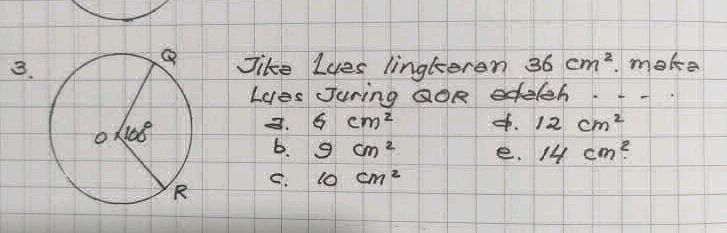 3.
Q
O 100°
R
Jika Luas lingkaran 36 cm². maka
Luas Juring QOR adalah . - - .
a. 6 cm²
b. 9 cm²
c. 10 cm²
d. 12 cm²
e. 14 cm²